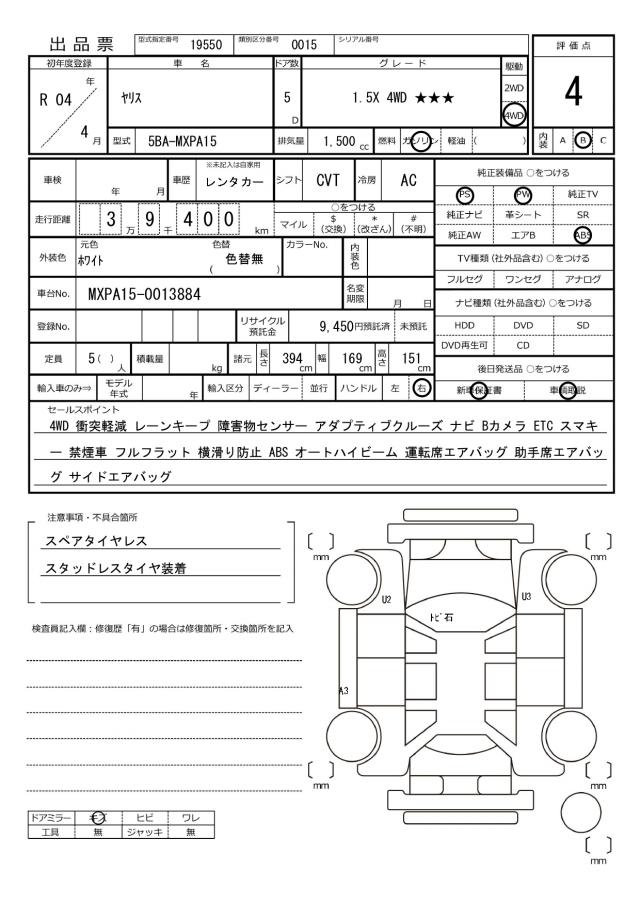 出品票 型式指定番号 19550 類別区分番号 0015 シリアル番号
初年度登録 車名 ドア数 グレード 駆動 評価点
R 04 年 4 月 ヤリス 5 D 1.5X 4WD ★★★ 2WD 4WD 4
型式 5BA-MXPA15 排気量 1,500 cc 燃料 ガソリン 軽油 ( ) 内装 A B C
車検 年 月 車歴 ※未記入は自家用 レンタカー シフト CVT 冷房 AC
純正装備品 ○をつける
PS PW 純正TV
走行距離 3 万 9 千 4 0 0 km ○をつける
マイル $ (交換) * (改ざん) # (不明)
純正ナビ 革シート SR
純正AW エアB ABS
外装色 元色 ホワイト 色替 ( 色替無 ) カラーNo. 内装色
TV種類 (社外品含む) ○をつける
フルセグ ワンセグ アナログ
車台No. MXPA15-0013884 名変期限 月 日
ナビ種類 (社外品含む) ○をつける
登録No. リサイクル預託金 9,450円預託済 未預託
HDD DVD SD
DVD再生可 CD
定員 5 ( ) 人 積載量 kg 諸元 長さ 394 cm 幅 169 cm 高さ 151 cm
後日発送品 ○をつける
輸入車のみ⇒ モデル年式 年 輸入区分 ディーラー 並行 ハンドル 左 右
新車保証書 車輌取説
セールスポイント
4WD 衝突軽減 レーンキープ 障害物センサー アダプティブクルーズ ナビ Bカメラ ETC スマキ
ー 禁煙車 フルフラット 横滑り防止 ABS オートハイビーム 運転席エアバッグ 助手席エアバッ
グ サイドエアバッグ
注意事項・不具合箇所
スペアタイヤレス
スタッドレスタイヤ装着
検査員記入欄：修復歴「有」の場合は修復箇所・交換箇所を記入
〔 〕 mm
〔 〕 mm
U2
U3
トビ石
A3
〔 〕 mm
〔 〕 mm
〔 〕 mm
ドアミラー キズ ヒビ ワレ
工具 無 ジャッキ 無